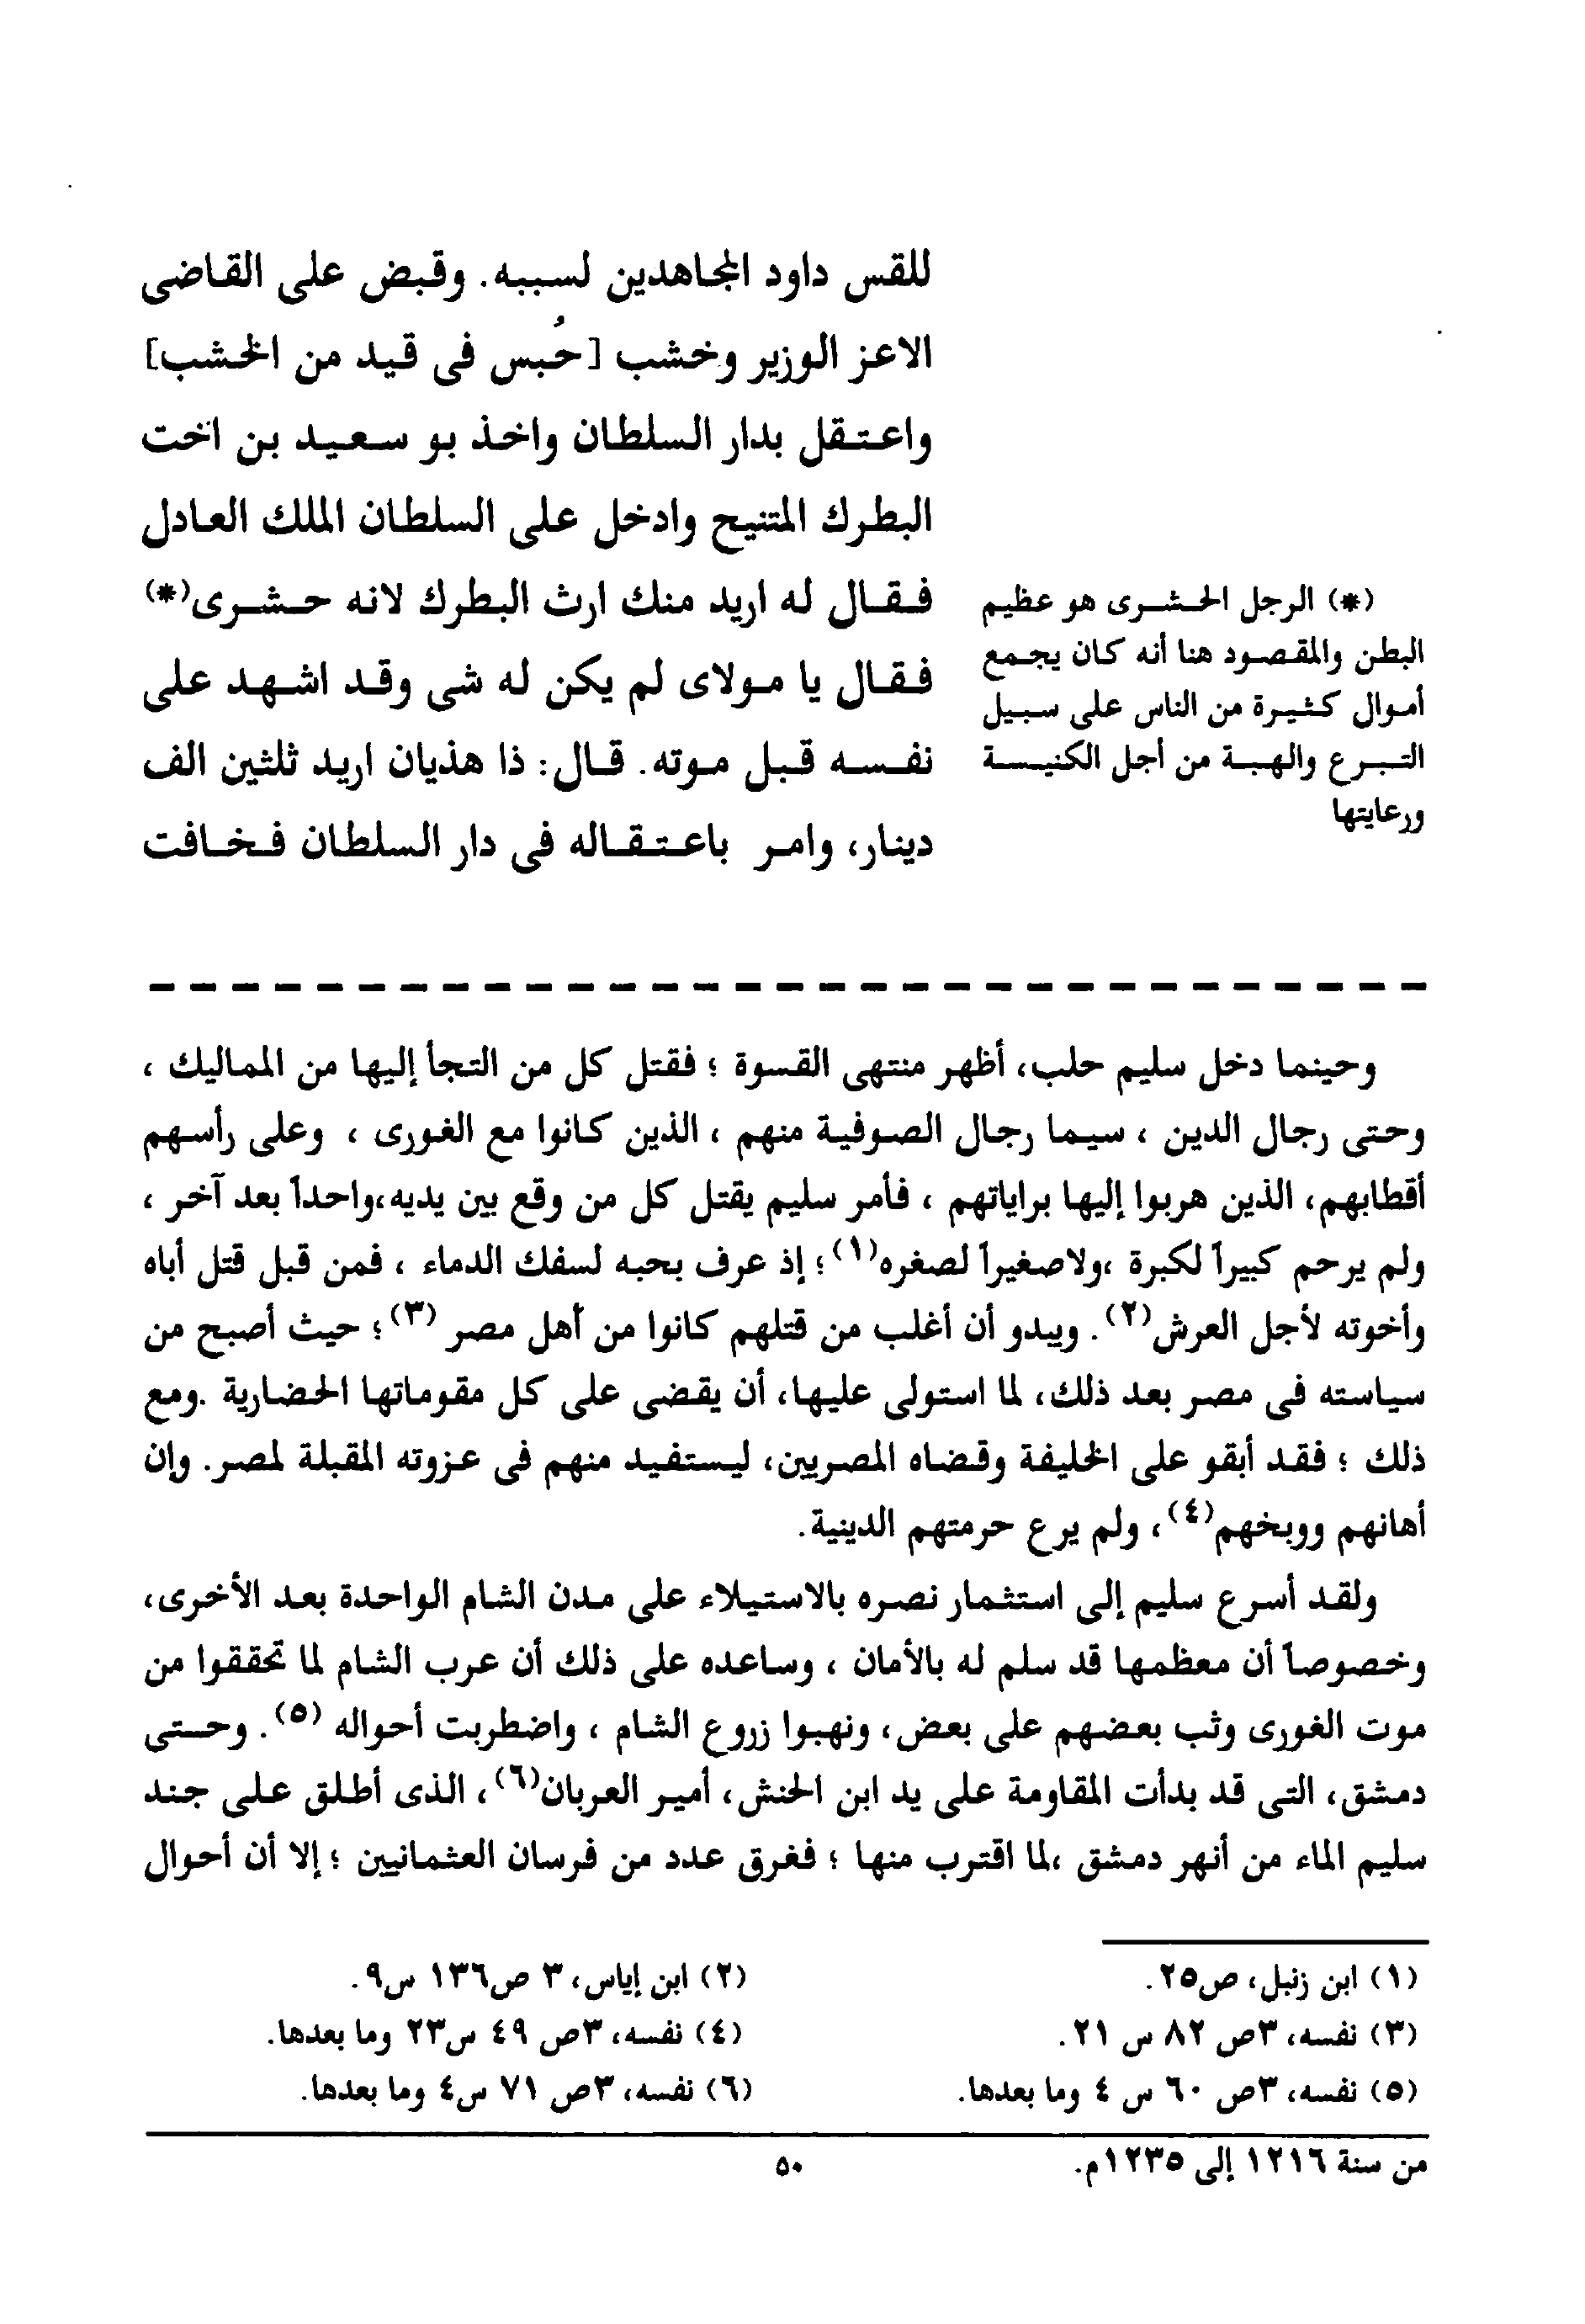 للقس داود المجاهدين لسببه. وقبض على القاضى
الاعز الوزير وخشب [حُبس فى قيد من الخشب]
واعتقل بدار السلطان واخذ بو سعيد بن اخت
البطرك المتنيح وادخل على السلطان الملك العادل
فقال له اريد منك ارث البطرك لانه حشرى(*)
فقال يا مولاى لم يكن له شى وقد اشهد على
نفسه قبل موته. قال: ذا هذيان اريد ثلثين الف
دينار، وامر باعتقاله فى دار السلطان فخافت
(*) الرجل الحشرى هو عظيم
البطن والمقصود هنا أنه كان يجمع
أموال كثيرة من الناس على سبيل
التبرع والهبة من أجل الكنيسة
ورعايتها
وحينما دخل سليم حلب، أظهر منتهى القسوة ؛ فقتل كل من التجأ إليها من المماليك ،
وحتى رجال الدين ، سيما رجال الصوفية منهم ، الذين كانوا مع الغورى ، وعلى رأسهم
أقطابهم، الذين هربوا إليها براياتهم ، فأمر سليم يقتل كل من وقع بين يديه،واحداً بعد آخر ،
ولم يرحم كبيراً لكبرة ،ولاصغيراً لصغره(١)؛ إذ عرف بحبه لسفك الدماء ، فمن قبل قتل أباه
وأخوته لأجل العرش(٢). ويبدو أن أغلب من قتلهم كانوا من أهل مصر (٣)؛ حيث أصبح من
سياسته فى مصر بعد ذلك، لما استولى عليها، أن يقضى على كل مقوماتها الحضارية .ومع
ذلك ؛ فقد أبقو على الخليفة وقضاه المصريين، ليستفيد منهم فى عزوته المقبلة لمصر. وإن
أهانهم ووبخهم(٤)، ولم يرع حرمتهم الدينية.
ولقد أسرع سليم إلى استثمار نصره بالاستيلاء على مدن الشام الواحدة بعد الأخرى،
وخصوصاً أن معظمها قد سلم له بالأمان ، وساعده على ذلك أن عرب الشام لما تحققوا من
موت الغورى وثب بعضهم على بعض، ونهبوا زروع الشام ، واضطربت أحواله (٥). وحتى
دمشق، التى قد بدأت المقاومة على يد ابن الحنش، أمير العربان(٦)، الذى أطلق على جند
سليم الماء من أنهر دمشق ،لما اقترب منها ؛ فغرق عدد من فرسان العثمانيين ؛ إلا أن أحوال
(١) ابن زنبل، ص٢٥.
(٢) ابن إياس، ٣ ص١٣٦ س٩.
(٣) نفسه، ٣ص ٨٢ س ٢١.
(٤) نفسه، ٣ص ٤٩ س٢٣ وما بعدها.
(٥) نفسه، ٣ص ٦٠ س ٤ وما بعدها.
(٦) نفسه، ٣ص ٧١ س٤ وما بعدها.
من سنة ١٢١٦ إلى ١٢٣٥م.
٥٠